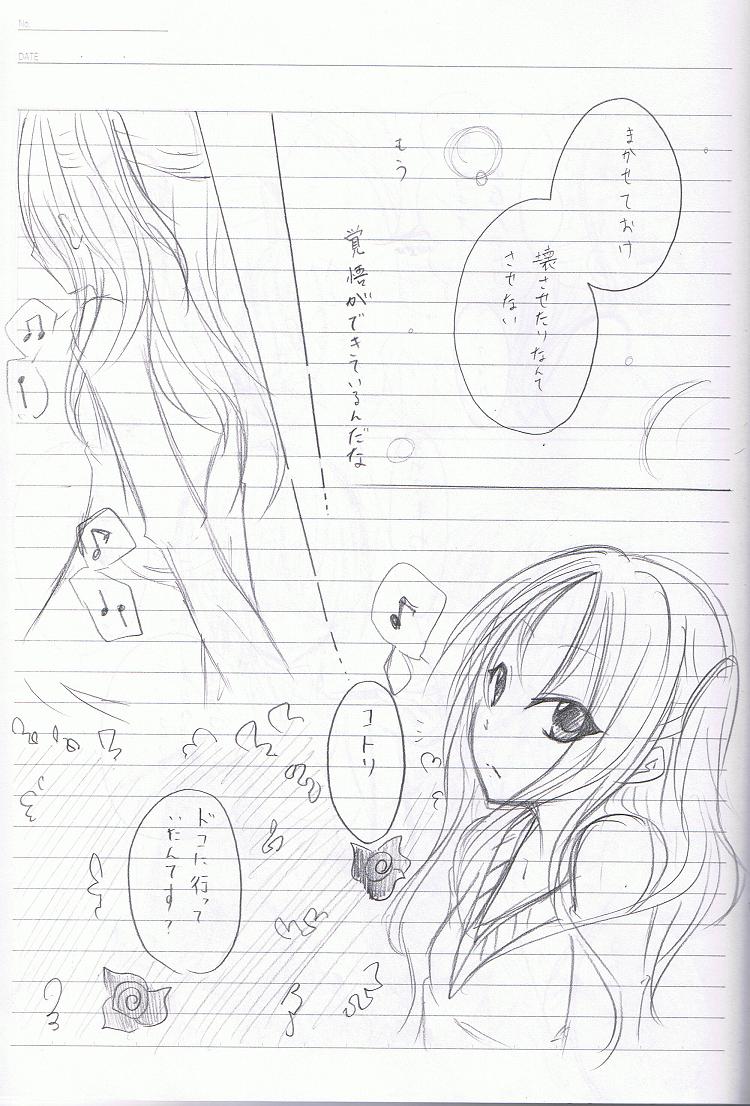 No.
DATE
まかせておけ
壊させたりなんて
させない
もう
覚悟ができているんだな
コトリ
ドコに行って
いたんです?